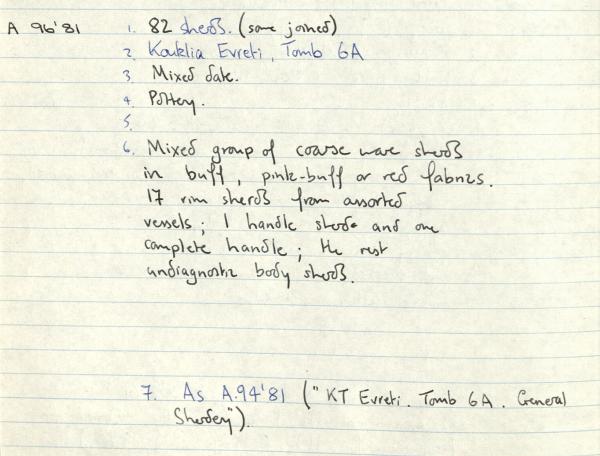 A 96'81 1. 82 sherds. (some joined)
2. Kouklia Evreti, Tomb 6A
3 Mixed date.
4. Pottery.
5.
6. Mixed group of coarse ware sherds
in buff, pink-buff or red fabrics.
17 rim sherds from assorted
vessels; 1 handle sherd and one
complete handle; the rest
undiagnostic body sherds.
7. As A.94'81 ("KT Evreti. Tomb 6A. General
Sherdery").